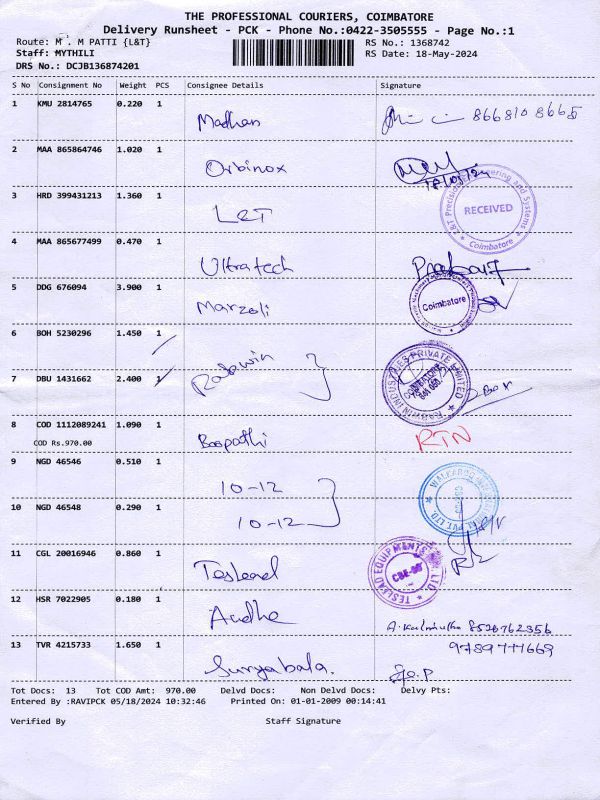 THE PROFESSIONAL COURIERS, COIMBATORE
Delivery Runsheet - PCK - Phone No.:0422-3505555 - Page No.:1
Route: M . M PATTI {L&T} RS No.: 1368742
Staff: MYTHILI RS Date: 18-May-2024
DRS No.: DCJB136874201
S No Consignment No Weight PCS Consignee Details Signature
1 KMU 2814765 0.220 1 Madhan 8668108665
2 MAA 865864746 1.020 1 Orbinox 18/05/24
3 HRD 399431213 1.360 1 L&T RECEIVED Coimbatore
4 MAA 865677499 0.470 1 Ultratech
5 DDG 676094 3.900 1 Marzoli Coimbatore
6 BOH 5230296 1.450 1
7 DBU 1431662 2.400 1 Rabwin RABWIN INDUSTRIES PRIVATE LIMITED COIMBATORE
8 COD 1112089241 1.090 1 Boopathi RTN
COD Rs.970.00
9 NGD 46546 0.510 1 10-12
10 NGD 46548 0.290 1 10-12
11 CGL 20016946 0.860 1 Teslead TESLEAD EQUIPMENTS LTD
12 HSR 7022905 0.180 1 8526762356
13 TVR 4215733 1.650 1 Suryabala. 9789777669
Tot Docs: 13 Tot COD Amt: 970.00 Delvd Docs: Non Delvd Docs: Delvy Pts:
Entered By :RAVIPCK 05/18/2024 10:32:46 Printed On: 01-01-2009 00:14:41
Verified By Staff Signature